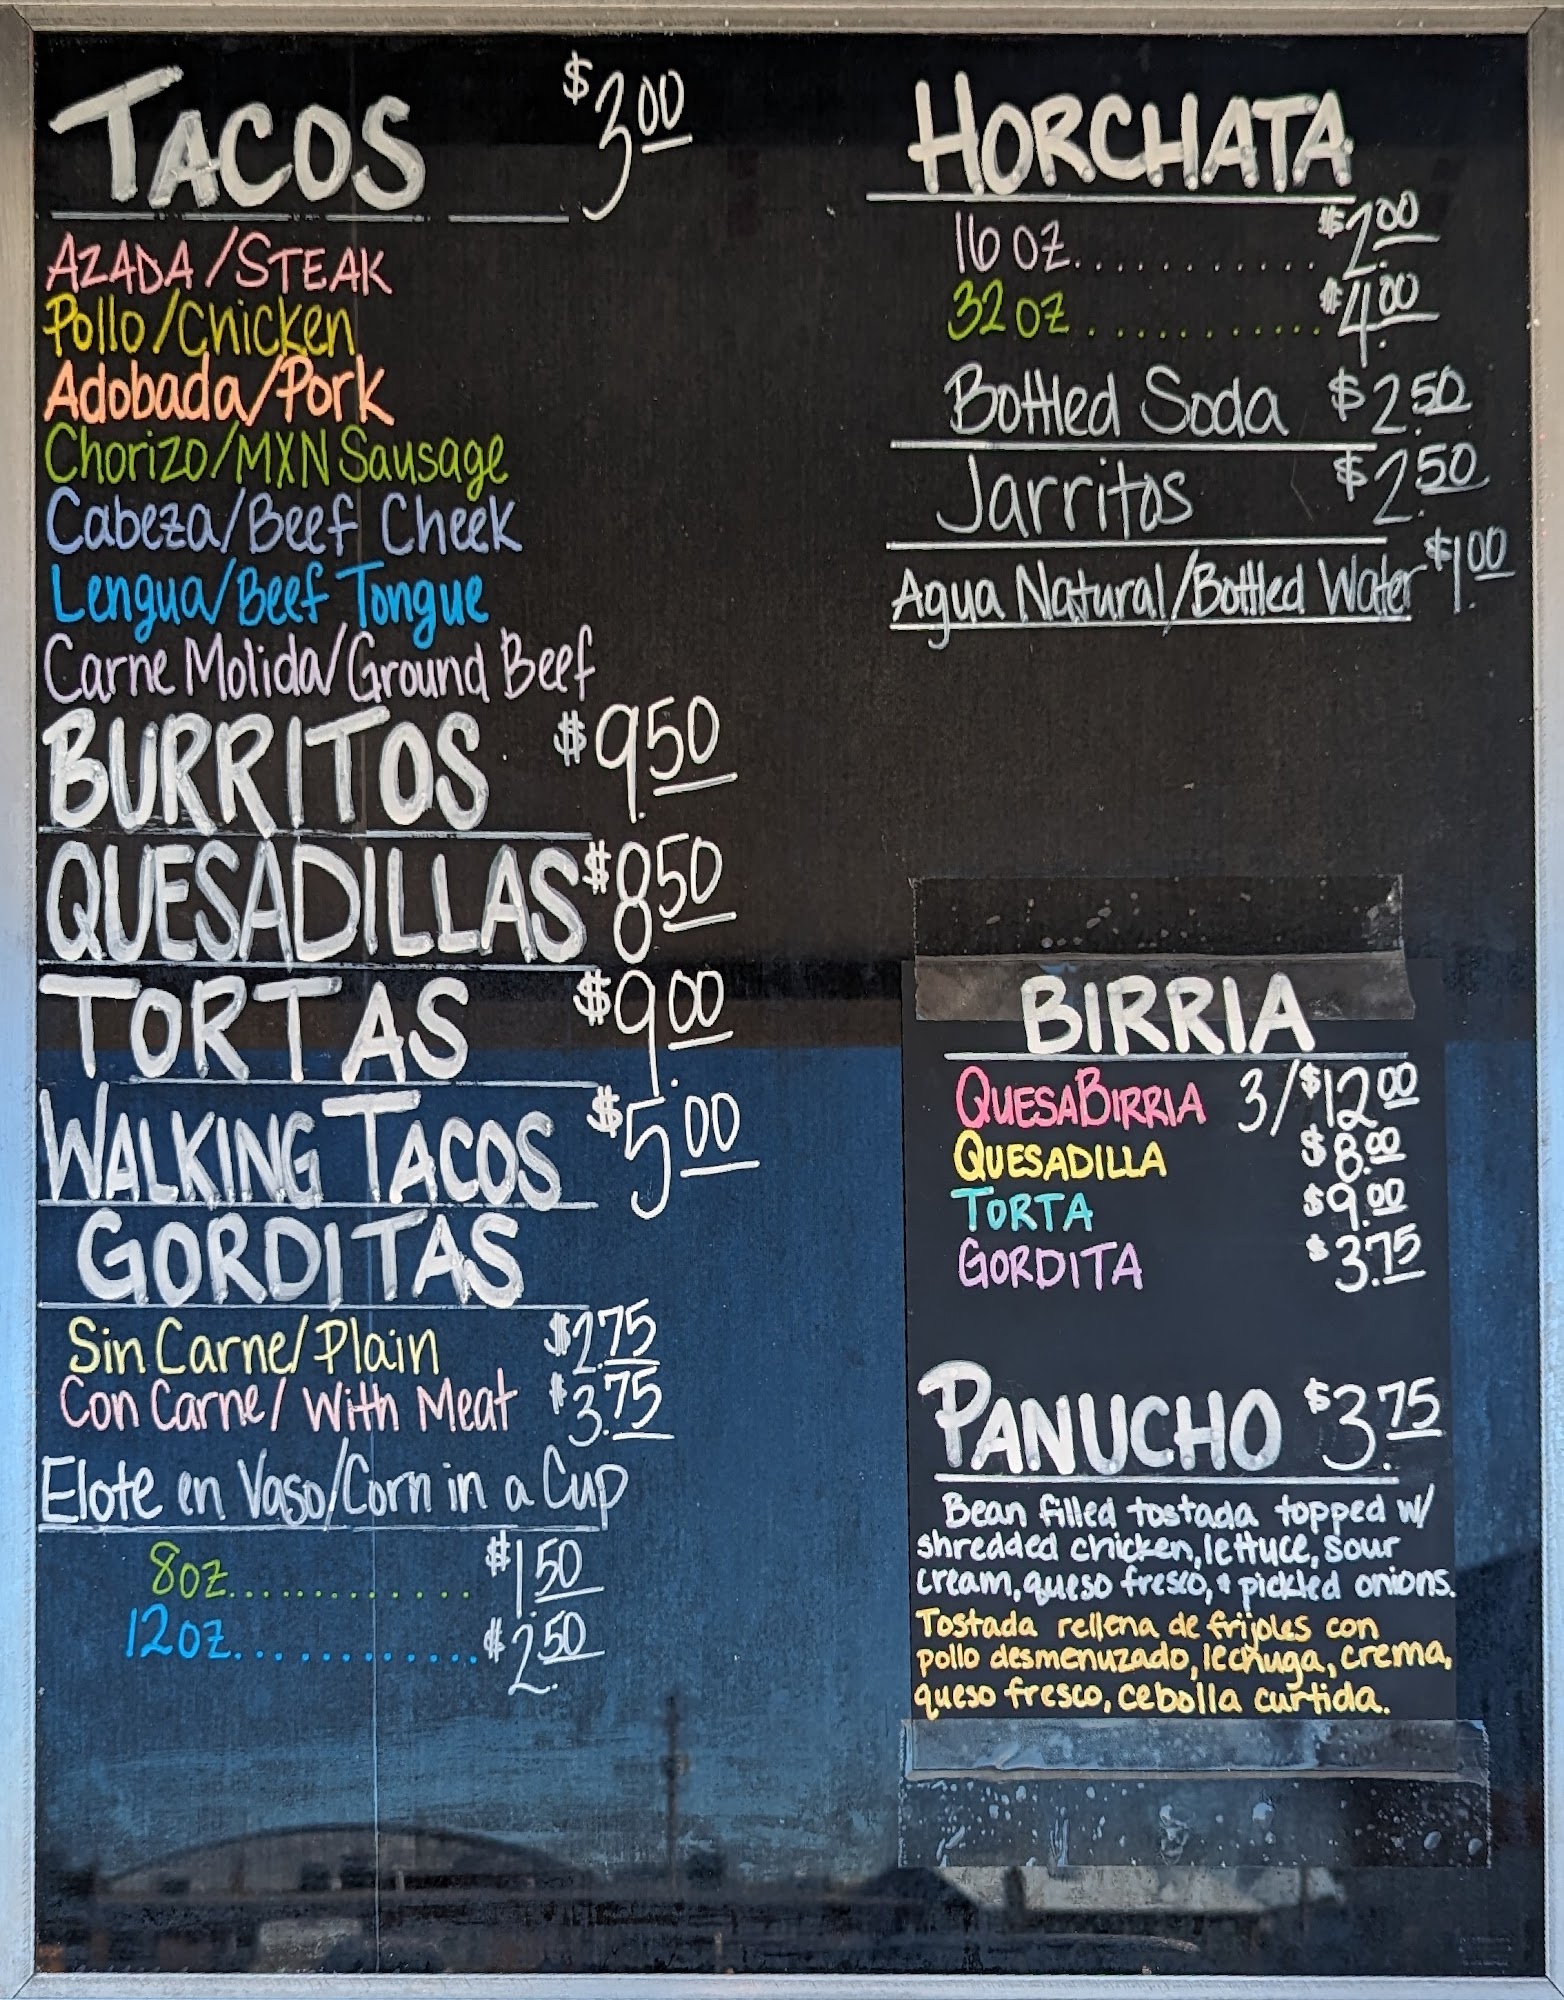 TACOS $3.00
AZADA/STEAK
Pollo/Chicken
Adobada/Pork
Chorizo/MXN Sausage
Cabeza/Beef Cheek
Lengua/Beef Tongue
Carne Molida/Ground Beef
BURRITOS $9.50
QUESADILLAS $8.50
TORTAS $9.00
WALKING TACOS $5.00
GORDITAS
Sin Carne/Plain $2.75
Con Carne/With Meat $3.75
Elote en Vaso/Corn in a Cup
8oz............. $1.50
12oz............ $2.50
HORCHATA
16 oz............. $2.00
32 oz............ $4.00
Bottled Soda $2.50
Jarritos $2.50
Agua Natural/Bottled Water $1.00
BIRRIA
QUESABIRRIA 3/$12.00
QUESADILLA $8.00
TORTA $9.00
GORDITA $3.75
PANUCHO $3.75
Bean filled tostada topped w/
shredded chicken, lettuce, sour
cream, queso fresco, + pickled onions.
Tostada rellena de frijoles con
pollo desmenuzado, lechuga, crema,
queso fresco, cebolla curtida.